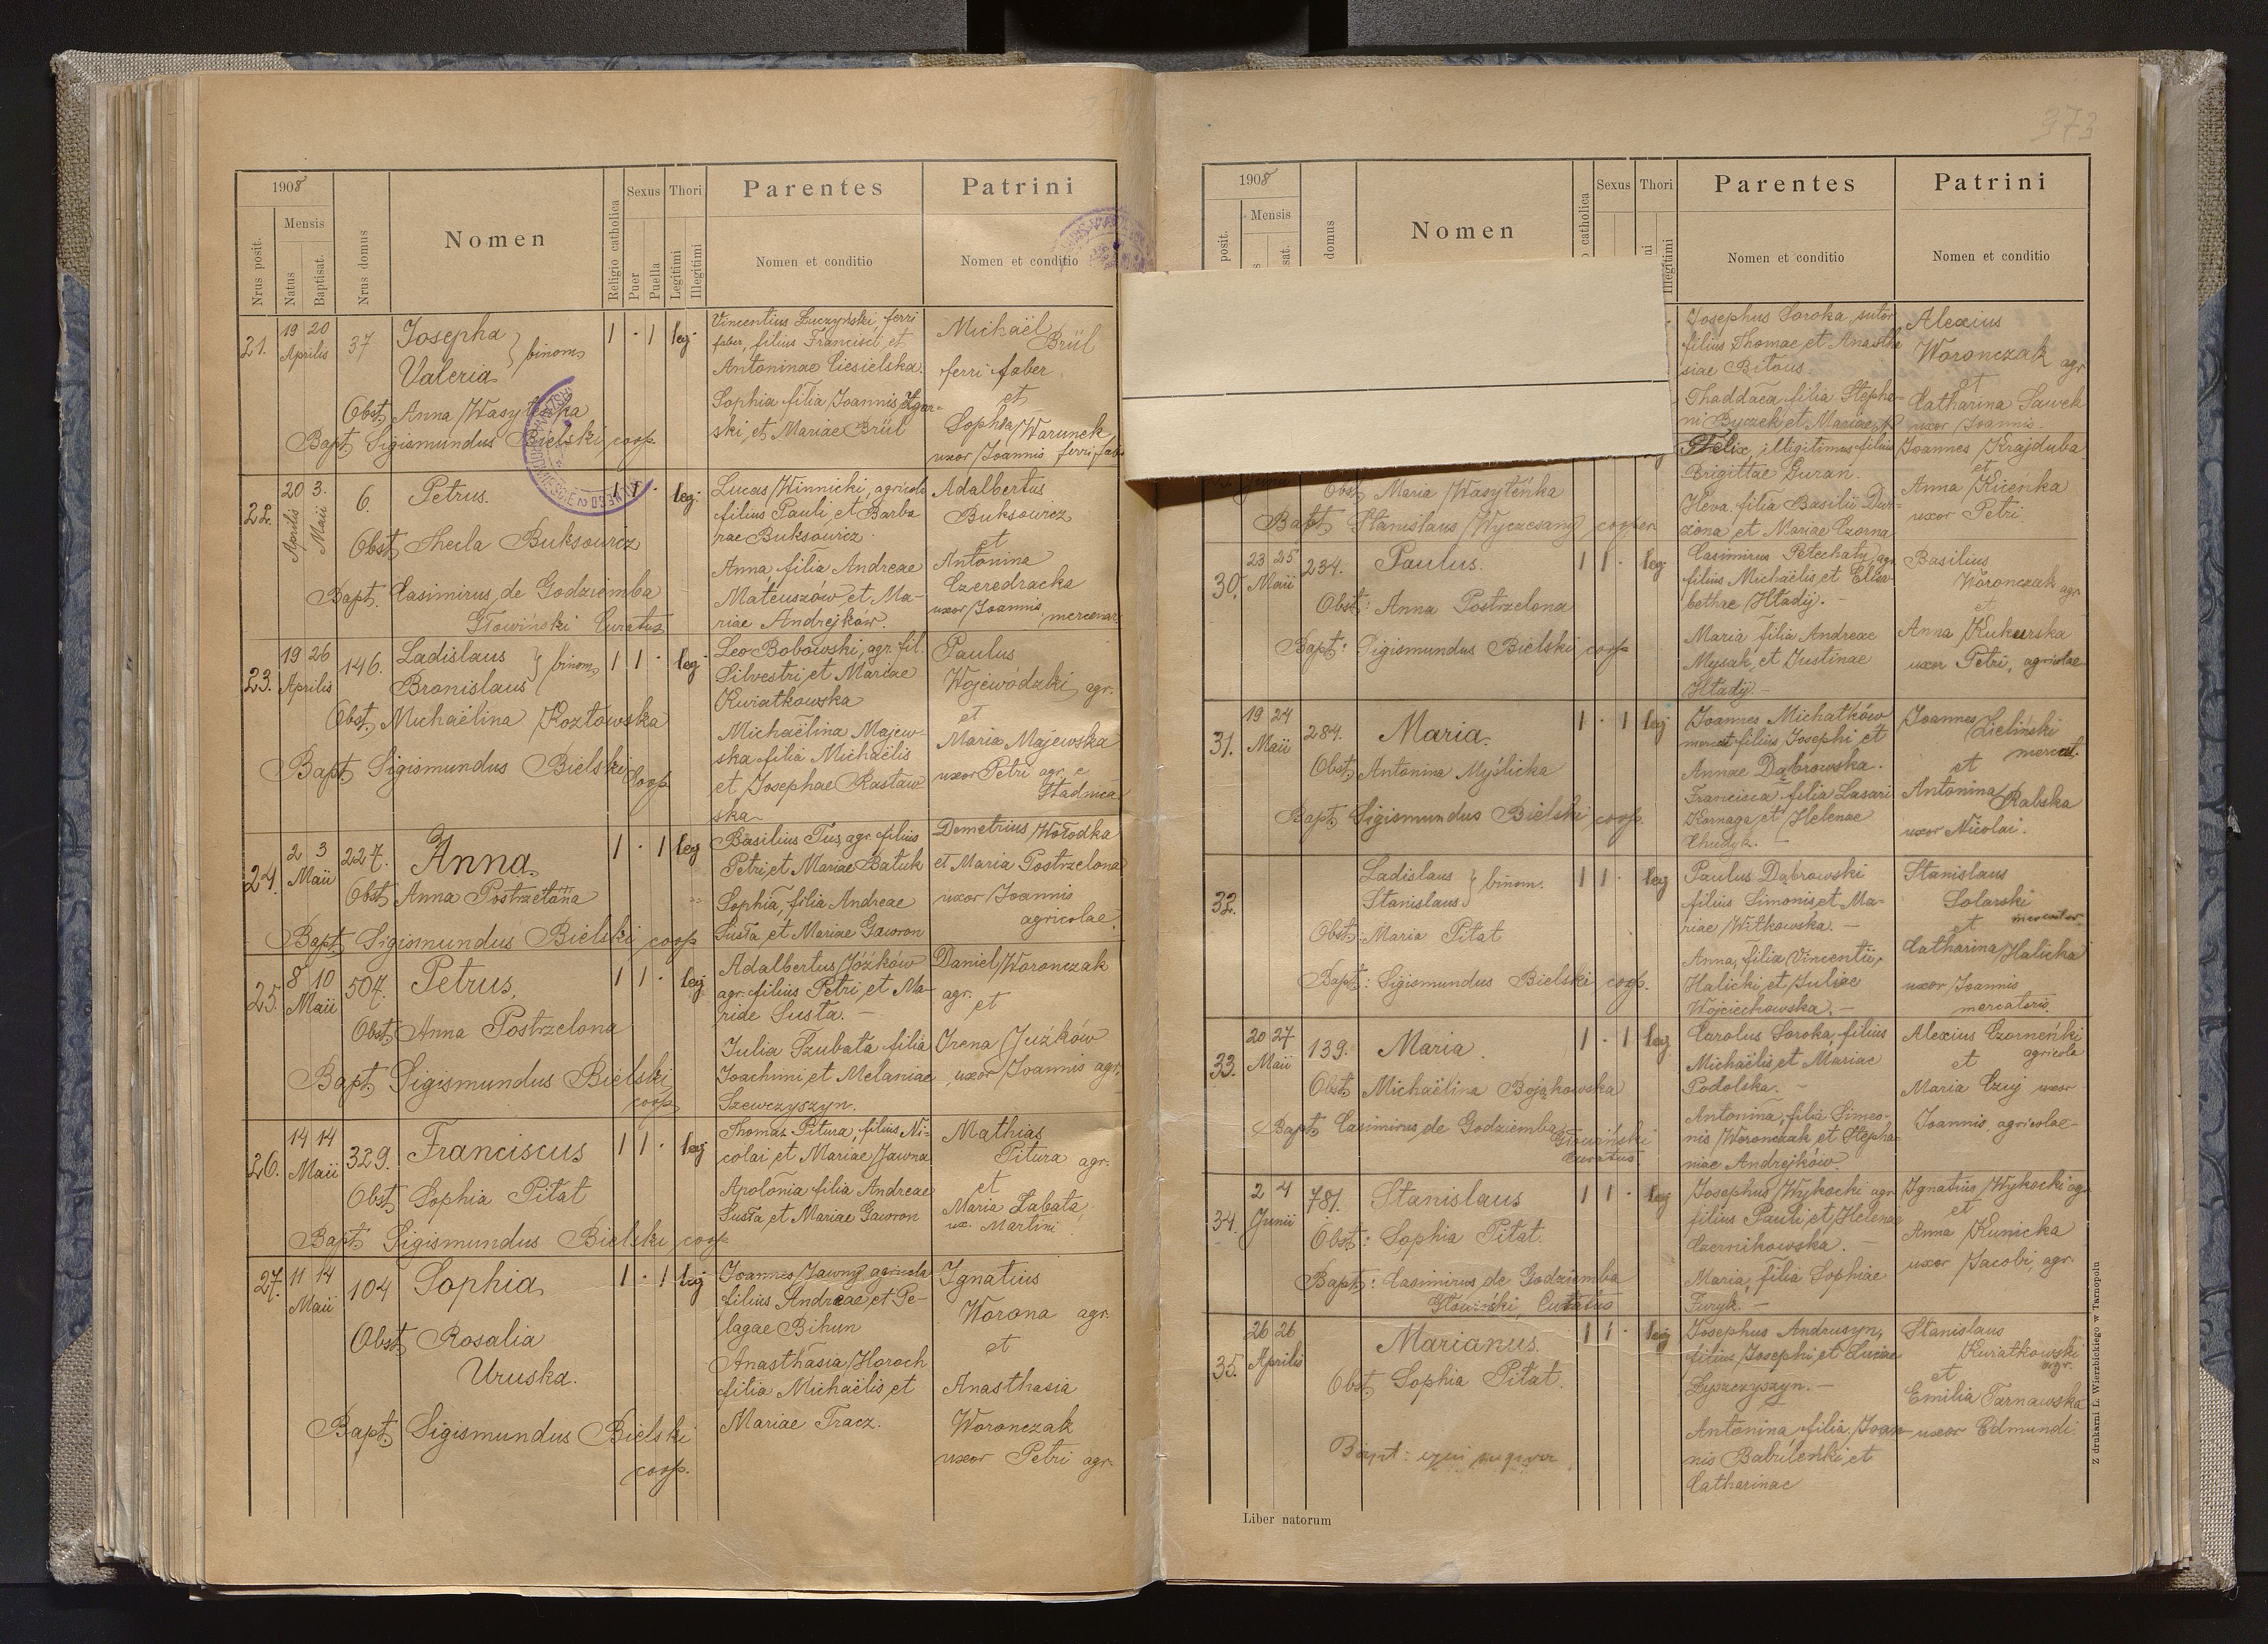 1908
Nrus posit.
Mensis
Natus
Baptisat.
Nrus domus
Nomen
Religio catholica
Sexus
Puer
Puella
Thori
Legitimi
Illegitimi
Parentes
Nomen et conditio
Patrini
Nomen et conditio
21. 19 20 Aprilis 37
Josepha
Valeria } binom
1 · 1 leg
Obst. Anna Wasyleńka
Bapt. Sigismundus Bielski, coop.
Vincentius Łuczyński, ferri
faber, filius Francisci et
Antoninae Ciesielska.
Sophia filia Joannis
ski, et Mariae Brül
Michaël
Brül
ferri faber
et
Sophia Warunek
uxor Joannis ferri fab
22. 20 3. Aprilis Maii 6.
Petrus.
1 1 · leg.
Obst. Thecla Buksowicz
Bapt. Casimirus de Godziemba
Głowiński Curatus
Lucas Winnicki, agricola
filius Pauli, et Barba
rae Buksowicz
Anna filia Andreae
Mateuszów et Ma-
riae Andrejków.
Adalbertus
Buksowicz
et
Antonina
Czeredracka
uxor Joannis, mercenar
23. 19 26 Aprilis 146.
Ladislaus
Bronislaus } binom
1 1 · leg
Obst. Michaëlina Kozłowska
Bapt. Sigismundus Bielski
coop.
Leo Bobowski, agr. fil.
Silvestri et Mariae
Kwiatkowska
Michaëlina Majew-
ska filia Michaëlis
et Josephae Rastaw
ska
Paulus
Wojewódzki, agr.
et
Maria Majewska
uxor Petri agr. e
24. 2 3 Maii 227.
Anna.
1 · 1 leg
Obst. Anna Postrzelona
Bapt. Sigismundus Bielski, coop
Basilius Tus, agr. filius
Petri, et Mariae Batuk
Sophia, filia Andreae
Susła, et Mariae Gawron
Demetrius Wołodka
et Maria Postrzelona
uxor Joannis
agricolae
25. 8 10 Maii 507.
Petrus.
1 1 · leg
Obst. Anna Postrzelona
Bapt. Sigismundus Bielski
coop.
Adalbertus Józków
agr. filius Petri, et Ma-
riae Susła. –
Julia Szubata filia
Joachimi et Melaniae
Szewczyszyn.
Daniel Woronczak
agr. et
Irena Juzków
uxor Joannis agr.
26. 14 14 Maii 329.
Franciscus
1 1 · leg
Obst. Sophia Pitat
Bapt. Sigismundus Bielski, coop
Thomas Pitura, filius Ni-
colai et Mariae Jawna
Apolonia filia Andreae
Susła et Mariae Gawron
Mathias
Pitura agr.
et
Maria Łabata,
ux. Martini
27. 11 14 Maii 104
Sophia
1 · 1 leg
Obst. Rosalia
Uruska.
Bapt. Sigismundus Bielski
coop.
Joannes Jawny agricola
filius Andreae, et Pe-
lagae Bihun
Anasthasia Horoch
filia Michaëlis, et
Mariae Tracz.
Ignatius
Worona agr.
et
Anasthasia
Woronczak
uxor Petri agr.
373
1908
posit.
Mensis
sat.
domus
Nomen
catholica
Sexus
Thori
Illegitimi
Parentes
Nomen et conditio
Patrini
Nomen et conditio
Josephus Soroka, sutor
filius Thomae et Anastha
siae Bitous.
Thaddaea filia Stepha-
ni Byczek et Mariae
Alexius
Woronczak agr
et
Catharina Sawek
uxor Joannis.
Felix, illigitimus filius
Brigittae Guran.
Heva. filia Basilii Dur-
zona et Mariae Czorna
Joannes Krajduba
et
Anna Kiceńka
uxor Petri
Junii
Obst. Maria Wasyleńka
Bapt. Stanislaus Wyczesany cooper.
30. 23 25 Maii 234.
Paulus.
1 1 · leg
Obst: Anna Postrzelona
Bapt: Sigismundus Bielski coop
Casimirus Petechaty agr.
filius Michaëlis, et Elisa-
bethae Hładij. –
Maria filia Andreae
Mysak, et Justinae
Hładij. –
Basilius
Woronczak agr
et
Anna Kukurska
uxor Petri, agricolae
31. 19 24 Maii 284.
Maria.
1 · 1 leg
Obst. Antonina Myślicka
Bapt. Sigismundus Bielski, coop.
Joannes Michałków
mercat filius Josephi et
Annae Dąbrowska.
Francisca filia Lasari
Karnaga et Helenae
Chudyk. –
Joannes
Zieliński
mercat.
et
Antonina Rabska
uxor Nicolai.
32.
Ladislaus
Stanislaus } binom.
1 1 · leg
Obst: Maria Pitat
Bapt: Sigismundus Bielski, coop.
Paulus Dąbrowski
filius Simonis, et Ma-
riae Witkowska. –
Anna, filia Vincentii,
Halicki, et Juliae
Wojciechowska. –
Stanislaus
Solarski
et mercator
Catharina Halicka
uxor Joannis
mercatoris.
33. 20 27 Maii 139.
Maria.
1 · 1 leg
Obst. Michaëlina Bojakowska
Bapt. Casimirus de Godziemba
Głowiński
Curatus.
Carolus Soroka, filius
Michaëlis, et Mariae
Podolska. –
Antonina, filia Simeo-
nis Woronczak et Stepha
niae Andrejków.
Alexius Czorneńki
agricola
et
Maria Czuj uxor
Joannis, agricolae
34. 2 4 Junii 781.
Stanislaus
1 1 · leg
Obst: Sophia Pitat.
Bapt: Casimirus de Godziemba
Głowiński, Curatus
Josephus Wykocki agr.
filius Pauli, et Helenae
Czernikowska. –
Maria, filia Sophiae
Furyk. –
Ignatius Wykocki agr
et
Anna Kunicka
uxor Jacobi, agr.
35. 26 26 Aprilis
Marianus.
1 1 · leg
Obst. Sophia Pitat.
Bapt:
Josephus Andrusyn,
filius Josephi, et Luciae
Łyszczyszyn. –
Antonina filia Joan-
nis Babileńki et
Catharinae
Stanislaus
Kwiatkowski
agr.
et
Emilia Tarnawska
uxor Edmundi.
Liber natorum
Z drukarni L. Wierzbickiego w Tarnopolu